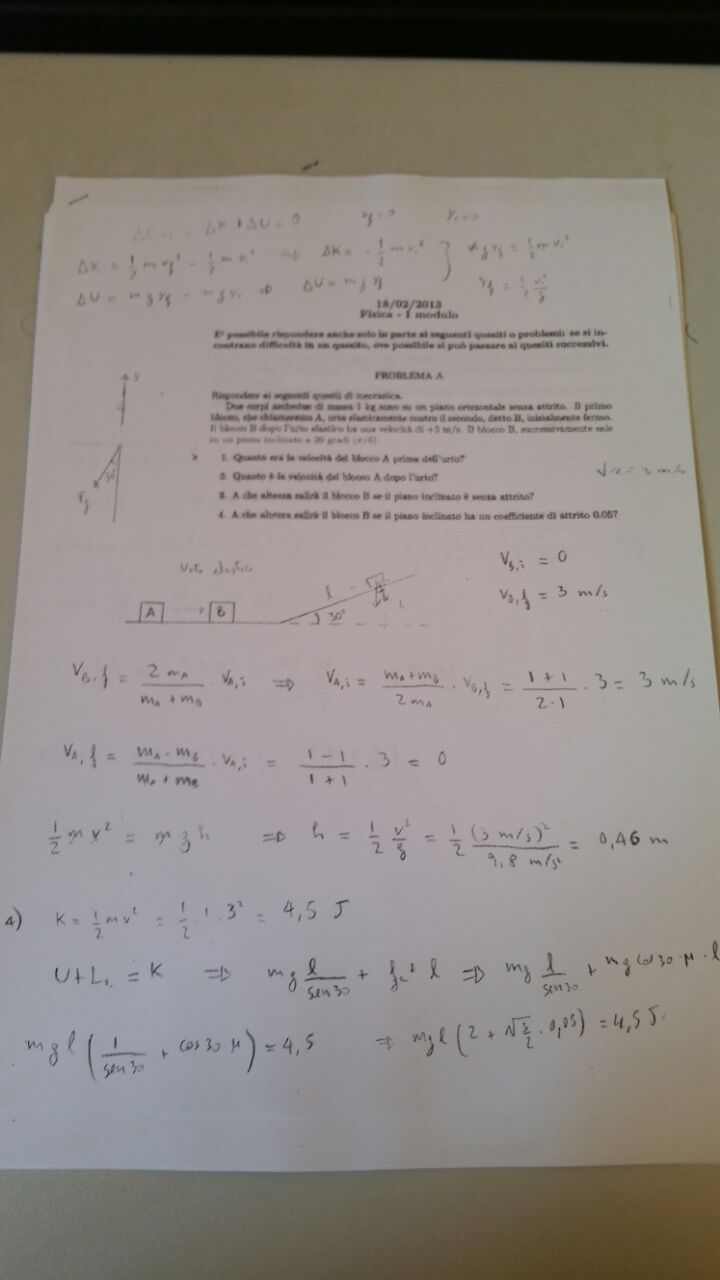 ΔK + ΔU = 0
ΔK = 1/2 m vf² - 1/2 m vi² => ΔK = - 1/2 m vi² } yf = 1/2 m vi²
ΔU = m g yf - m g yi => ΔU = m g yf yf = 1/2 vi²/g
18/02/2013
Fisica - I modulo
E' possibile rispondere anche solo in parte ai seguenti quesiti o problemi: se si in-
contrano difficoltà in un quesito, ove possibile si può passare ai quesiti successivi.
PROBLEMA A
Rispondere ai seguenti quesiti di meccanica.
Due corpi ambedue di massa 1 kg sono su un piano orizzontale senza attrito. Il primo
blocco, che chiameremo A, urta elasticamente contro il secondo, detto B, inizialmente fermo.
Il blocco B dopo l'urto elastico ha una velocità di +3 m/s. Il blocco B, successivamente sale
su un piano inclinato a 30 gradi (π/6).
1. Quanto era la velocità del blocco A prima dell'urto?
2. Quanto è la velocità del blocco A dopo l'urto?
3. A che altezza salirà il blocco B se il piano inclinato è senza attrito?
4. A che altezza salirà il blocco B se il piano inclinato ha un coefficiente di attrito 0.05?
y
30°
Fg
= 3 m/s
Urto elastico
A B l 30°
VB,i = 0
VB,f = 3 m/s
VB,f = 2 mA / (mA + mB) · VA,i => VA,i = (mA + mB) / 2 mA · VB,f = (1 + 1) / (2·1) · 3 = 3 m/s
VA,f = (mA - mB) / (mA + mB) · VA,i = (1 - 1) / (1 + 1) · 3 = 0
1/2 m v² = m g h => h = 1/2 v²/g = 1/2 (3 m/s)² / 9,8 m/s² = 0,46 m
4) K = 1/2 m v² = 1/2 · 1 · 3² = 4,5 J
U + L = K => mg l/sen30 + l => mg l/sen30 + mg cos30·μ·l
mgl (1/sen30 + cos30·μ) = 4,5 => mgl (2 + √3/2 · 0,05) = 4,5 J